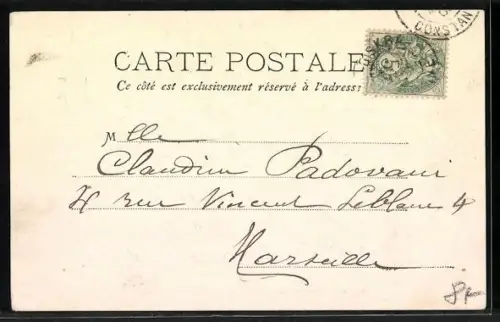 CARTE POSTALE
Ce côté est exclusivement réservé à l'adresse
CONSTAN
5
Mlle
Claudine Padovani
4 rue Vincent Leblanc 4
Marseille